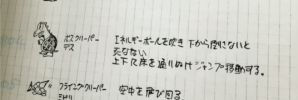 ボスクリーパー
デス
エネルギーボールを吐き 下から倒さないと
死なない
上下に床を通りぬけジャンプ移動する。
フライングクリーパー
空中を飛び回る